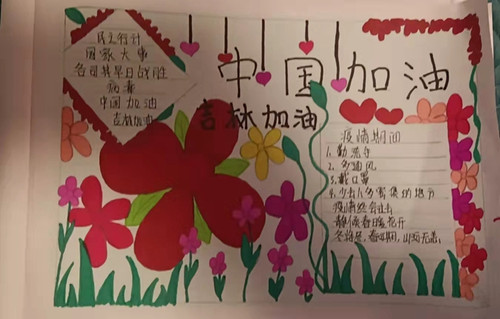 民之行计
国家大事
各司其早日战胜
病毒
中国加油
吉林加油
中国加油
吉林加油
疫情期间
1.勤洗手
2.多通风
3.戴口罩
4.少出人多密集的地方
疫情终会过去
静候春暖花开
冬将尽，春可期，山河无恙